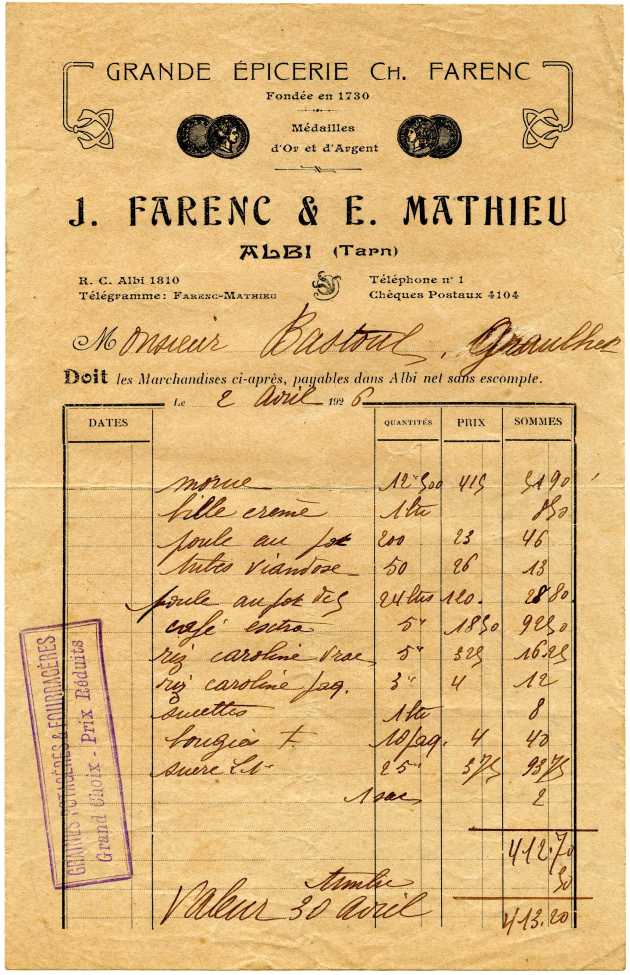 GRANDE ÉPICERIE CH. FARENC
Fondée en 1730
Médailles
d'Or et d'Argent
J. FARENC & E. MATHIEU
ALBI (Tarn)
R. C. Albi 1810
Téléphone n° 1
Télégramme: FARENC-MATHIEU
Chèques Postaux 4104
Monsieur Bastoul, Graulhet
Doit les Marchandises ci-après, payables dans Albi net sans escompte.
Le 2 Avril 1926
DATES QUANTITÉS PRIX SOMMES
morue 12 k 500 415 51 90
bille creme 1 bte 8 50
poule au pot 200 23 46
tubes viandose 50 26 13
poule au pot 24 btes 120. 28 80.
café extra 5 k 18 50 92 50
riz caroline vrac 5 k 325 16.25
riz caroline paq. 3 k 4 12
sucettes 1 bte 8
bougies 10 paq. 4 40
sucre 25 k 375 93 75
1 sac 2
412.70
timbre 50
Valeur 30 avril 413.20
GRAINES POTAGÈRES & FOURRAGÈRES
Grand Choix - Prix Réduits